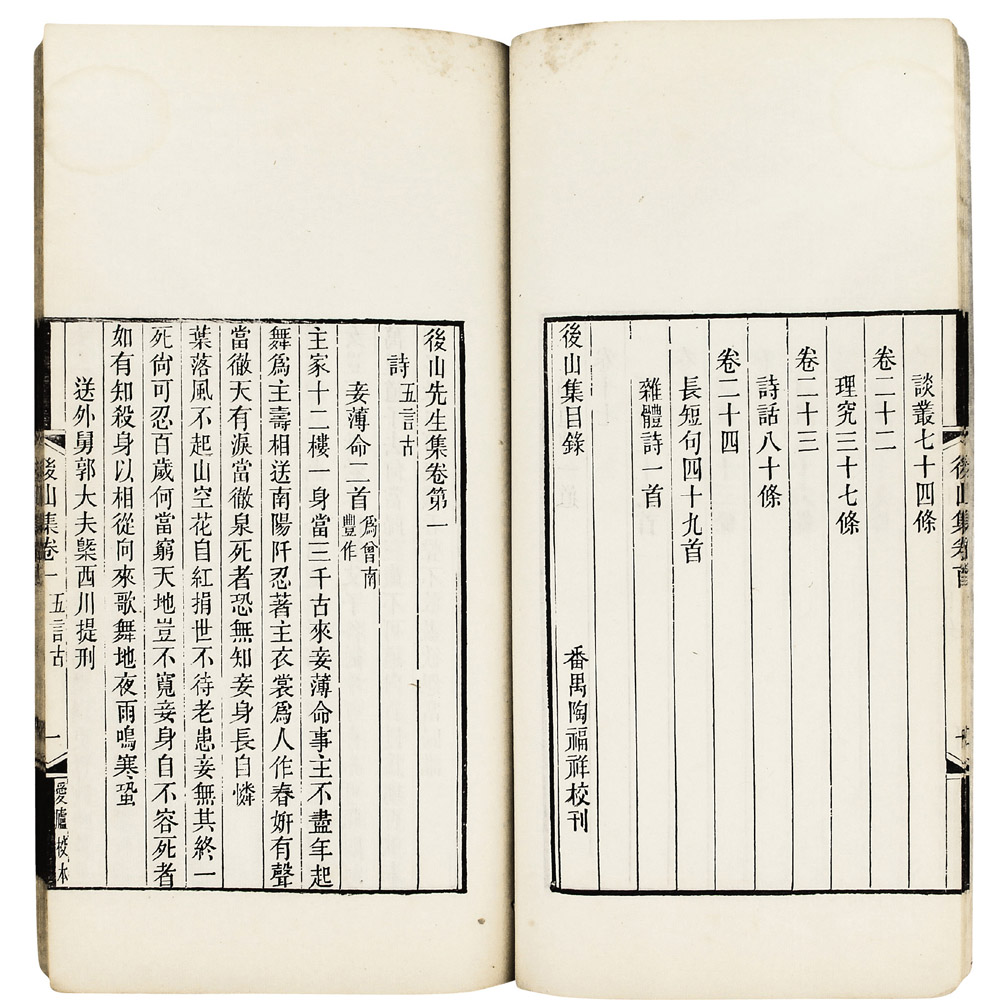 談叢七十四條
卷二十二
理究三十七條
卷二十三
詩話八十條
卷二十四
長短句四十九首
雜體詩一首
後山集目錄
番禺陶福祥校刊
後山集卷首
後山先生集卷第一
詩 五言古
妾薄命二首 爲曾南豐作
主家十二樓一身當三千古來妾薄命事主不盡年起
舞爲主壽相送南陽阡忍著主衣裳爲人作春姸有聲
當徹天有淚當徹泉死者恐無知妾身長自憐
葉落風不起山空花自紅捐世不待老患妾無其終一
死尙可忍百歲何當窮天地豈不寬妾身自不容死者
如有知殺身以相從向來歌舞地夜雨鳴寒蛩
送外舅郭大夫槩西川提刑
後山集卷一 五言古
一
愛廬校本